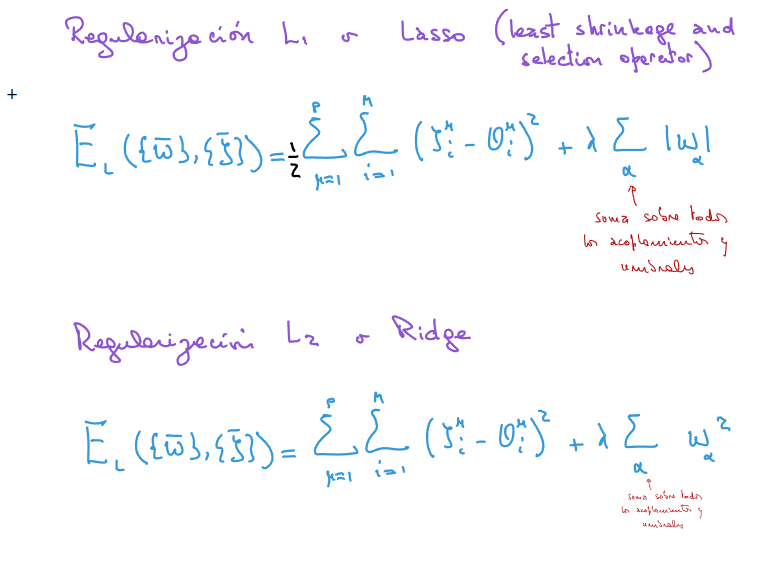 Regularización L₁ o Lasso (least shrinkage and
selection operator)
E_L ({w̄}, {ζ̄}) = 1/2 Σ_{μ=1}^{p} Σ_{i=1}^{M} (ζ_i^μ - O_i^μ)² + λ Σ_α |w_α|
suma sobre todos
los acoplamientos y
umbrales
Regularización L₂ o Ridge
E_L ({w̄}, {ζ̄}) = Σ_{μ=1}^{p} Σ_{i=1}^{M} (ζ_i^μ - O_i^μ)² + λ Σ_α w_α²
suma sobre todos
los acoplamientos y
umbrales